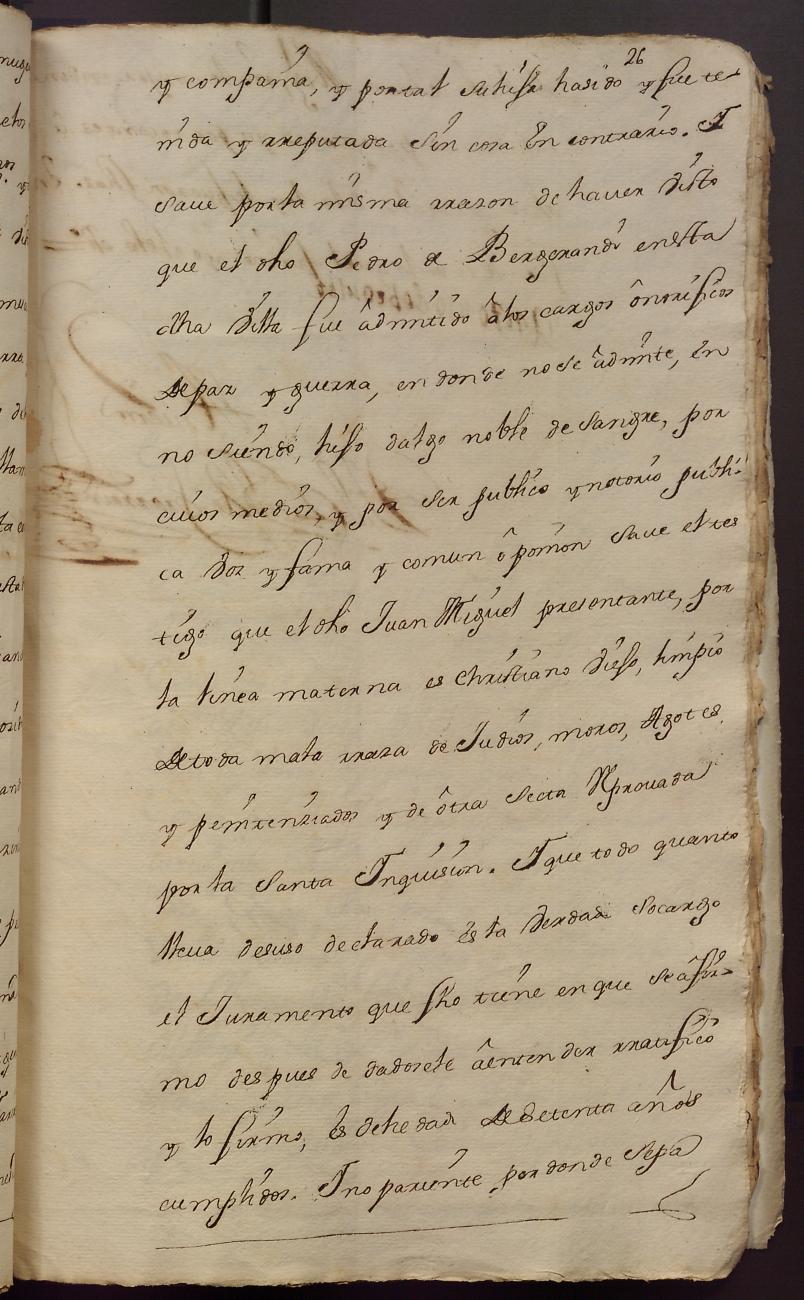 26
y compañia, y por tal su hija ha sido y fue te-
nida y rreputada sin cosa en contrario. Y
save por la misma rrazon de haver visto
que el dho Pedro de Bergerandi en esta
dha villa fue âdmitido â los cargos ônorificos
de paz y guerra, en donde no se âdmite, en
no siendo, hijo dalgo noble de sangre, por
cuios medios, y por ser publico y notorio publi-
ca voz y fama y comun ôpinion save el tes
tigo que el dho Juan Miguel presentante, por
la linea materna es christiano viejo, limpio
de toda mala rraza de Judios, moros, Agotes,
y penitenziados y de ôtra secta Reprouada
por la santa Inquisiion. Y que todo quanto
lleua desuso declarado es la verdad socargo
el Juramento que fho tiene en que se afir-
mo despues de dadosele âentender rratifico
y lo firmo, es de hedad de setenta años
cumplidos. Y no pariente por donde sepa